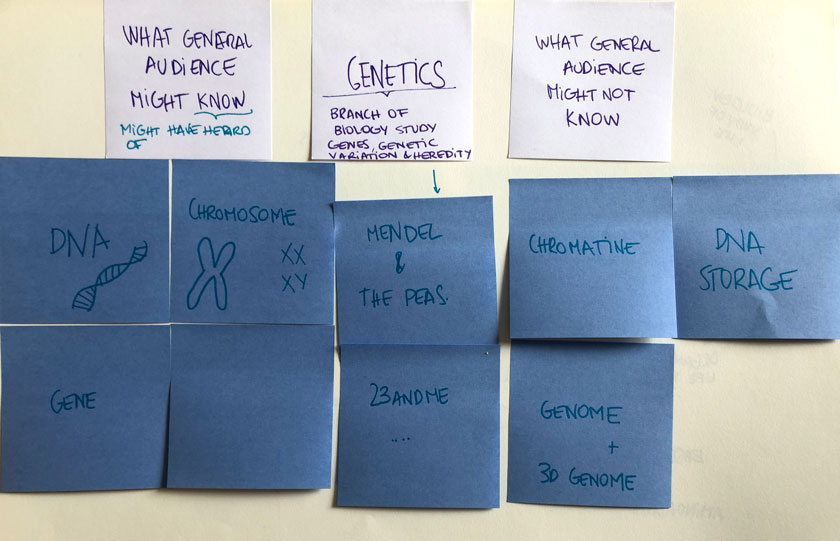 WHAT GENERAL
AUDIENCE
MIGHT KNOW
MIGHT HAVE HEARD
OF
GENETICS
BRANCH OF
BIOLOGY STUDY
GENES, GENETIC
VARIATION & HEREDITY
WHAT GENERAL
AUDIENCE
MIGHT NOT
KNOW
DNA
CHROMOSOME
XX
XY
MENDEL
&
THE PEAS.
CHROMATINE
DNA
STORAGE
GENE
23ANDME
....
GENOME
+
3D GENOME